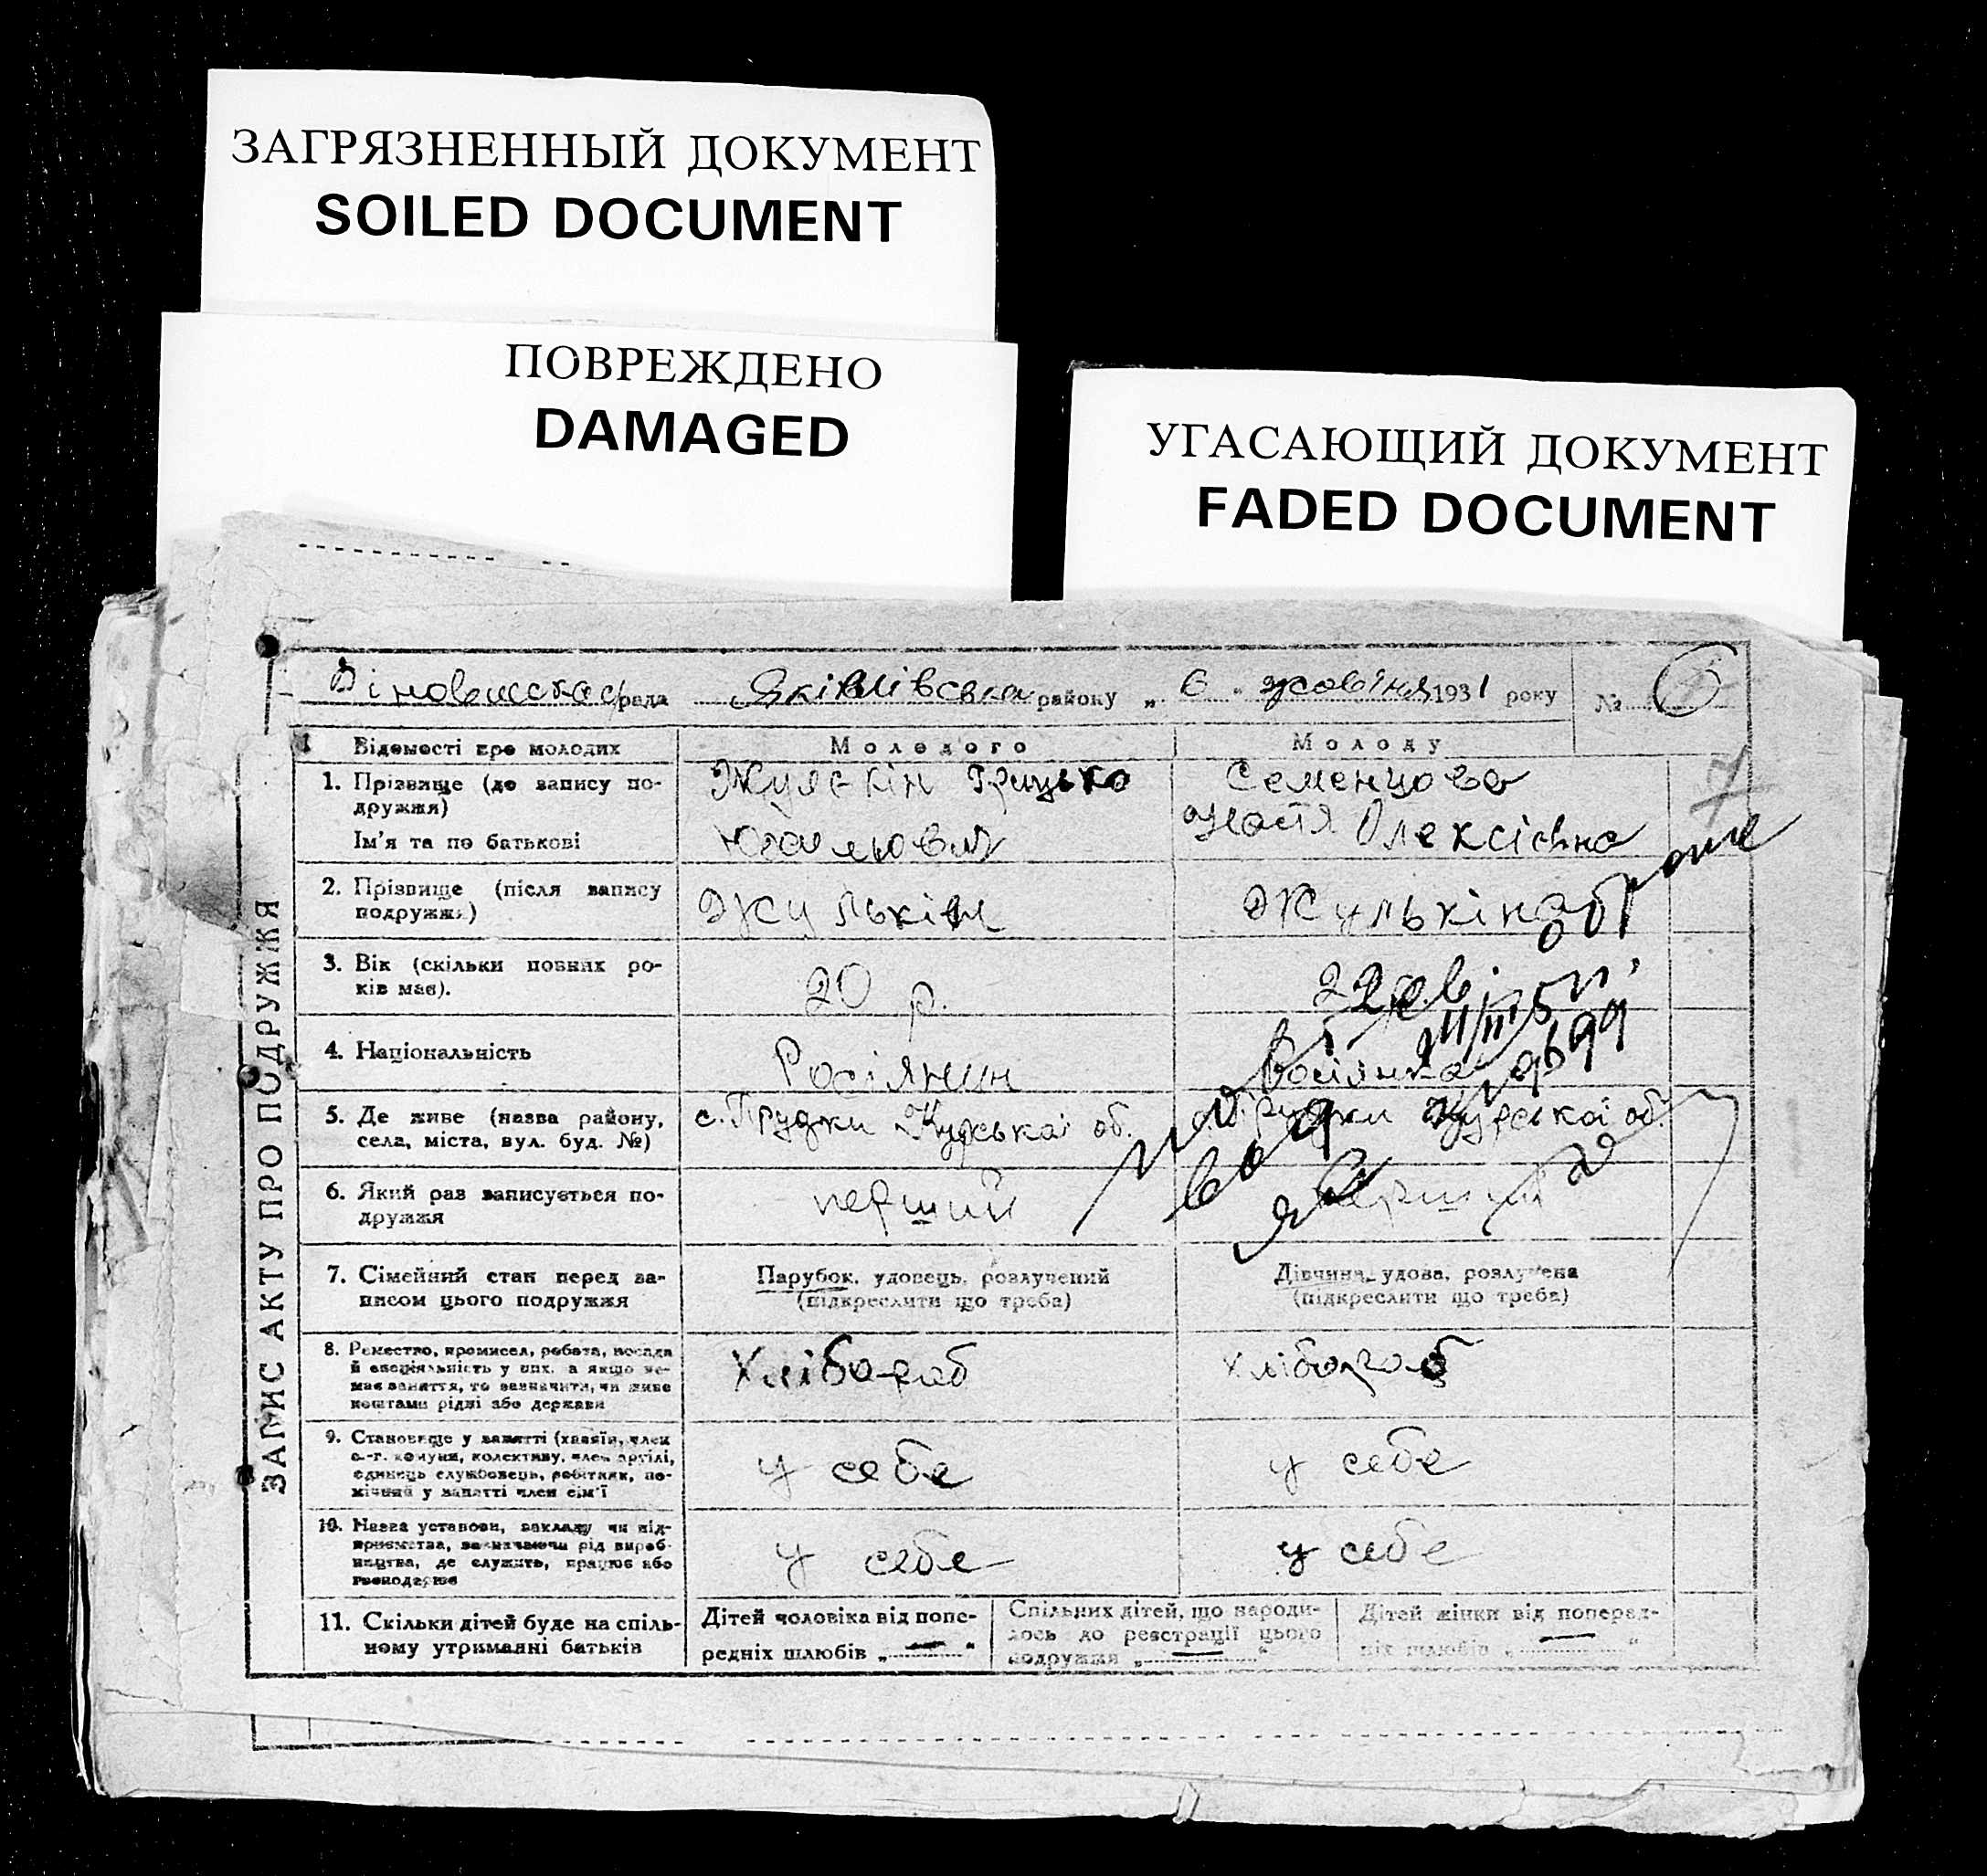 ЗАГРЯЗНЕННЫЙ ДОКУМЕНТ
SOILED DOCUMENT
ПОВРЕЖДЕНО
DAMAGED
УГАСАЮЩИЙ ДОКУМЕНТ
FADED DOCUMENT
рада Яківлівська району „ 6 " жовтня 1931 року №
ЗАПИС АКТУ ПРО ПОДРУЖЖЯ
Відомості про молодих Молодого Молоду
1. Прізвище (до запису по-
дружжя)
Ім'я та по батькові
Грицько
Семенцова
Настя Олексієвна
7
2. Прізвище (після запису
подружжя)
Жулькін
Жулькіна
3. Вік (скільки повних ро-
ків має).
20 р.
22
4. Національність
Росіянин
Росіянка
5. Де живе (назва району,
села, міста, вул. буд. №)
с. Прудки Курської об.
с. Прудки Курської об.
6. Який раз записується по-
дружжя
перший
перший
7. Сімейний стан перед за-
писом цього подружжя
Парубок, удовець, розлучений
(підкреслити що треба)
Дівчина, удова, розлучена
(підкреслити що треба)
8. Ремество, промисел, робота, посада
й спеціяльність у них, а якщо не-
має заняття, то зазначити, чи живе
коштами рідні або держави
Хлібороб
Хлібороб
9. Становище у занятті (хазяїн, член
с.-г. комуни, колективу, член артілі,
одинець службовець, робітник, по-
мічний у занятті член сім'ї
у себе
у себе
10. Назва установи, закладу чи під-
приємства, зазначаючи рід вироб-
ництва, де служить, працює або
господарює
у себе
у себе
11. Скільки дітей буде на спіль-
ному утриманні батьків
Дітей чоловіка від попе-
редніх шлюбів „ — "
Спільних дітей, що народи-
лось до реєстрації цього
подружжя „ — "
Дітей жінки від поперед-
ніх шлюбів „ — "